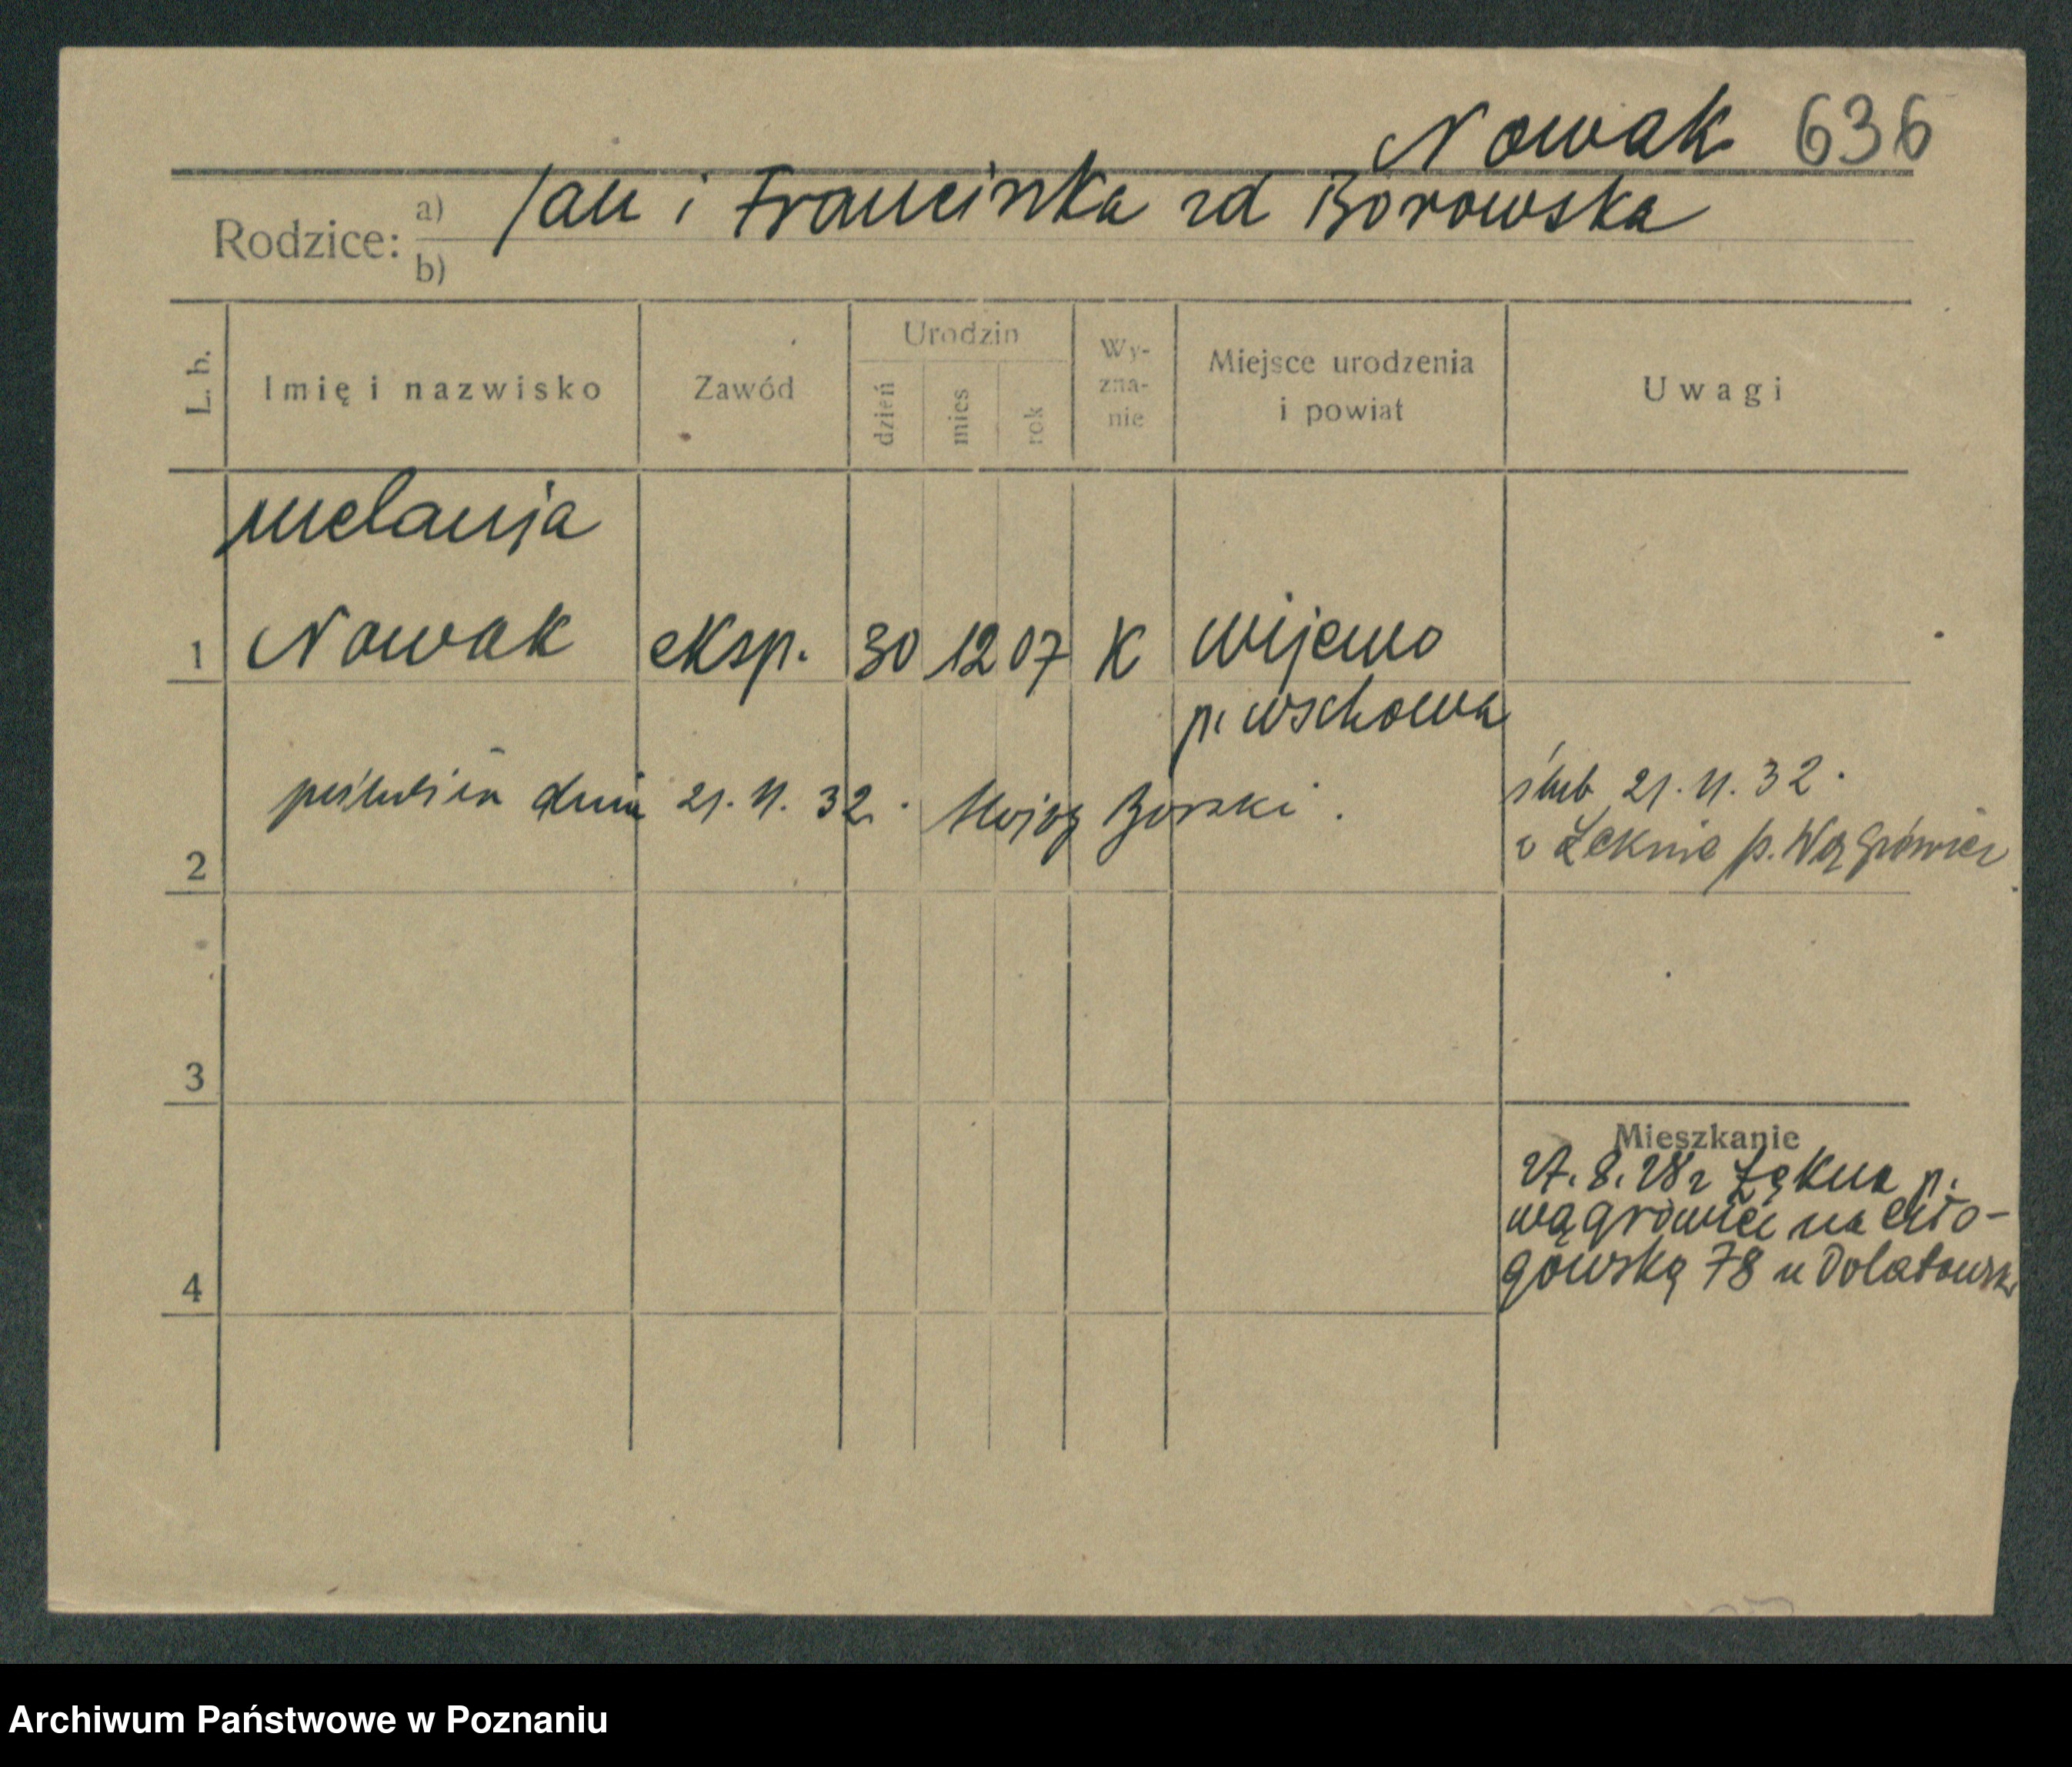 Nowak 636
Rodzice: a) Jan i Franciszka zd Borowska
b)
L. b.
Imię i nazwisko
Zawód
Urodzin
dzień
mies
rok
Wy-
zna-
nie
Miejsce urodzenia
i powiat
Uwagi
Melanja
1 Nowak eksp. 30 12 07 K Wijewo
p. Wschowa
dnia 21. 11. 32. Borski.
ślub 21. 11. 32.
2
w Łeknie p. Wągrówiec
3
Mieszkanie
27. 8. 28 r Łękna p.
wągrówiec na Gło-
gowską 78 u Dolatowsk
4
Archiwum Państwowe w Poznaniu